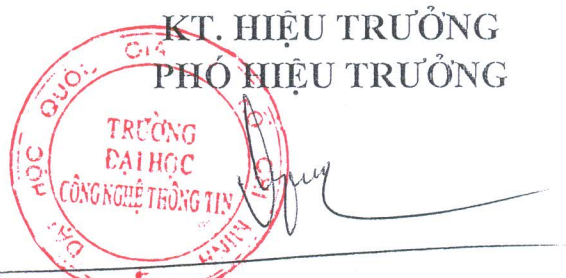 KT. HIỆU TRƯỞNG
PHÓ HIỆU TRƯỞNG
ĐẠI HỌC QUỐC GIA
TRƯỜNG
ĐẠI HỌC
CÔNG NGHỆ THÔNG TIN